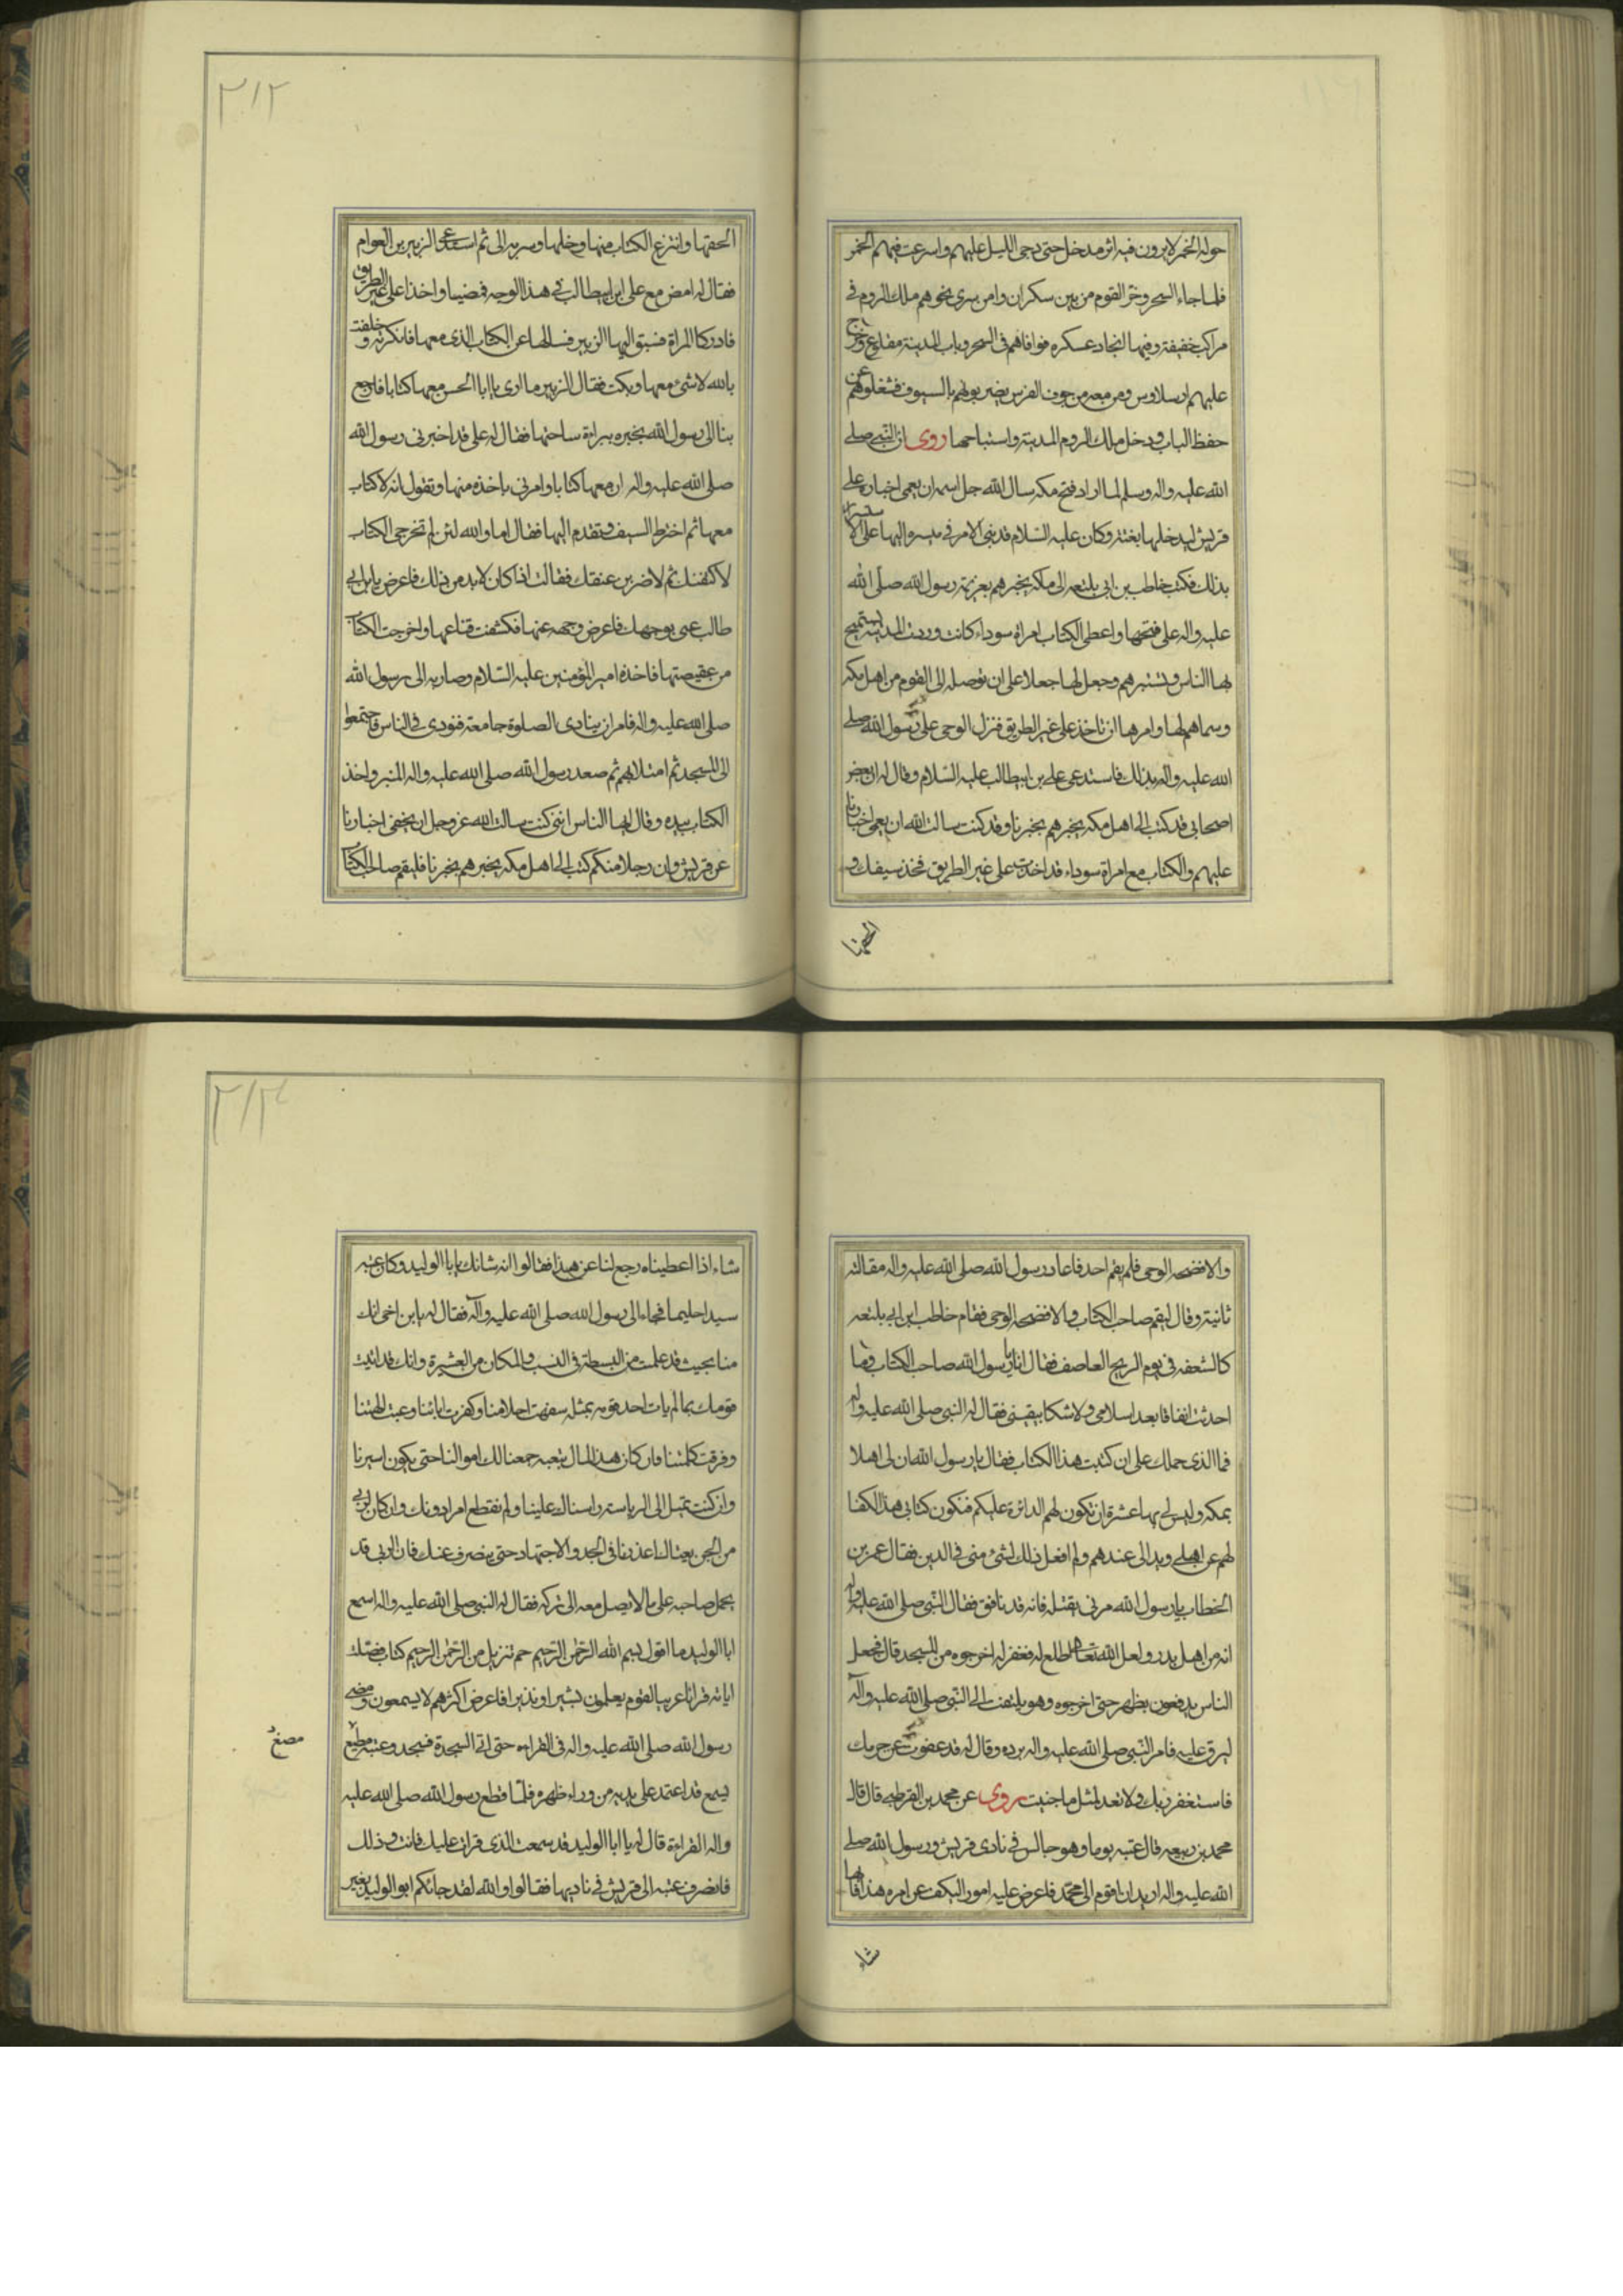 حوله الخمر لا يرون فيه اثر مدخل حتى دجى الليل عليهم واسرعت فيهم الخمر
فلما جاء السحر وخر القوم من بين سكران وامن سرى نحوهم ملك الروم في
مراكب خفيفة وفيها انجاد عسكره فوافاهم في السحر وباب المدينة مفلوع وخرج
عليهم ارسلاوس ومن معه من جوف الفرس يضربونهم بالسيوف فشغلوهم عن
حفظ الباب ودخل ملك الروم المدينة واستباحها روى ان النبي صلى
الله عليه واله وسلم لما اراد فتح مكه سال الله جل اسمه ان يعمى اخباره على
قريش ليدخلها بغتة وكان عليه السلام قد بنى الامر في مسيره اليها على الاستسرار
بذلك فكتب خاطب بن ابي بلتعه الى مكه يخبرهم بعزيمة رسول الله صلى الله
عليه واله على فتحها واعطى الكتاب امراة سوداء كانت وردت المدينة تستميح
بها الناس وتستبرهم وجعل لها جعلا على ان توصله الى القوم من اهل مكه
وسماهم لها وامرها ان تاخذ على غير الطريق فنزل الوحى على رسول الله صلى
الله عليه واله بذلك فاستدعى على بن ابيطالب عليه السلام وقال له ان بعض
اصحابى قد كتب الى اهل مكه يخبرهم بخبرنا وقد كنت سالت الله ان يعمى اخبارنا
عليهم والكتاب مع امراة سوداء قد اخذت على غير الطريق فخذ سيفك و
الحقها
٢١٢
الحقها وانتزع الكتاب منها وخلها وسر به الى ثم استدعى الزبير بن العوام
فقال له امض مع على ابن ابيطالب في هذا الوجه فمضيا واخذا على غير الطريق
فادركا المراة فسبق اليها الزبير فسالها عن الكتاب الذى معها فانكرته وحلفت
بالله لا شئ معها وبكت فقال الزبير ما ارى يا ابا الحسن معها كتابا فارجع
بنا الى رسول الله نخبره ببراءة ساحتها فقال له على قد اخبرنى رسول الله
صلى الله عليه واله ان معها كتابا وامرنى باخذه منها وتقول انه لا كتاب
معها ثم اخترط السيف وتقدم اليها فقال اما والله لئن لم تخرجى الكتاب
لاكشفنك ثم لاضربن عنقك فقالت اذا كان لا بد من ذلك فاعرض يا بن ابي
طالب عنى بوجهك فاعرض وجهه عنها فكشفت قناعها واخرجت الكتاب
من عقيصتها فاخذه امير المؤمنين عليه السلام وصار به الى رسول الله
صلى الله عليه واله فامر ان ينادى الصلوة جامعة فنودى في الناس فاجتمعوا
الى المسجد ثم امتلا بهم ثم صعد رسول الله صلى الله عليه واله المنبر واخذ
الكتاب بيده وقال ايها الناس اننى كنت سالت الله عز وجل ان يخفى اخبارنا
عن قريش وان رجلا منكم كتب الى اهل مكه يخبرهم بخبرنا فليقم صاحب الكتاب
والا فضحه الوحى فلم يقم احد فاعاد رسول الله صلى الله عليه واله مقالته
ثانية وقال ليقم صاحب الكتاب والا فضحه الوحى فقام خاطب ابن ابي بلتعه
كالسعفه في يوم الريح العاصف فقال انا يا رسول الله صاحب الكتاب وما
احدثت نفاقا بعد اسلامى ولا شكا بيقينى فقال له النبى صلى الله عليه واله
فما الذى حملك على ان كتبت هذا الكتاب فقال يا رسول الله ان لى اهلا
بمكه وليس لى بها عشيرة ان تكون لهم الدائرة عليكم فتكون كتابى هذا كفا
لهم عن اهلى ويدا لى عندهم ولم افعل ذلك لشئ منى في الدين فقال عمر بن
الخطاب يا رسول الله مرنى بقتله فانه قد نافق فقال النبى صلى الله عليه واله
انه من اهل بدر ولعل الله تعالى اطلع له فغفر له اخرجوه من المسجد قال فجعل
الناس يدفعون بظهره حتى اخرجوه وهو يلتفت الى النبى صلى الله عليه واله
ليرق عليه فامر النبى صلى الله عليه واله برده وقال له قد عفوت عن جرمك
فاستغفر ربك ولا تعد لمثل ما جنيت روى عن محمد بن القرظى قال قال
محمد بن ربيعه قال عتبه يوما وهو جالس في نادى قريش ورسول الله صلى
الله عليه واله اريد ان اقوم الى محمد فاعرض عليه امورا ليكف عن امره هذا فايها
شاء
٢١٣
شاء اذا اعطيناه رجع لنا عن هذا فقالوا انه شانك يا ابا الوليد وكان عتبه
سيدا حليما فجاء الى رسول الله صلى الله عليه وآله فقال له يا بن اخى انك
منا بحيث قد علمت من البسطة في النسب والمكان من العشيرة وانك قد اتيت
قومك بما لم يات احد قومه بمثله سفهت احلامنا وكفرت ابائنا وعبت الهتنا
وفرقت كلمتنا فان كان هذا المال تبعيه جمعنا لك اموالنا حتى يكون ايسرنا
وان كنت تميل الى الرياسة راسناك علينا ولم نقطع امرا دونك وان كان لربى
من الجن بعثا لك اعذرنا في الجد والاجتهاد حتى ينصرف عنك فان الربى قد
يحمل صاحبه على ما لا يصل معه الى تركه فقال له النبى صلى الله عليه واله اسمع
ابا الوليد ما اقول بسم الله الرحمن الرحيم حم تنزيل من الرحمن الرحيم كتاب فصلت
اياته قرانا عربيا لقوم يعلمون بشيرا ونذيرا فاعرض اكثرهم لا يسمعون ومضى
رسول الله صلى الله عليه واله في القراءه حتى اتى السجدة فسجد وعتبه مطيع
مصغ
يسمع قد اعتمد على يديه من وراء ظهره فلما قطع رسول الله صلى الله عليه
واله القراءة قال له يا ابا الوليد قد سمعت الذى قرات عليك فانت وذلك
فانصرف عتبه الى قريش في ناديها فقالوا والله لقد جائكم ابو الوليد بغير